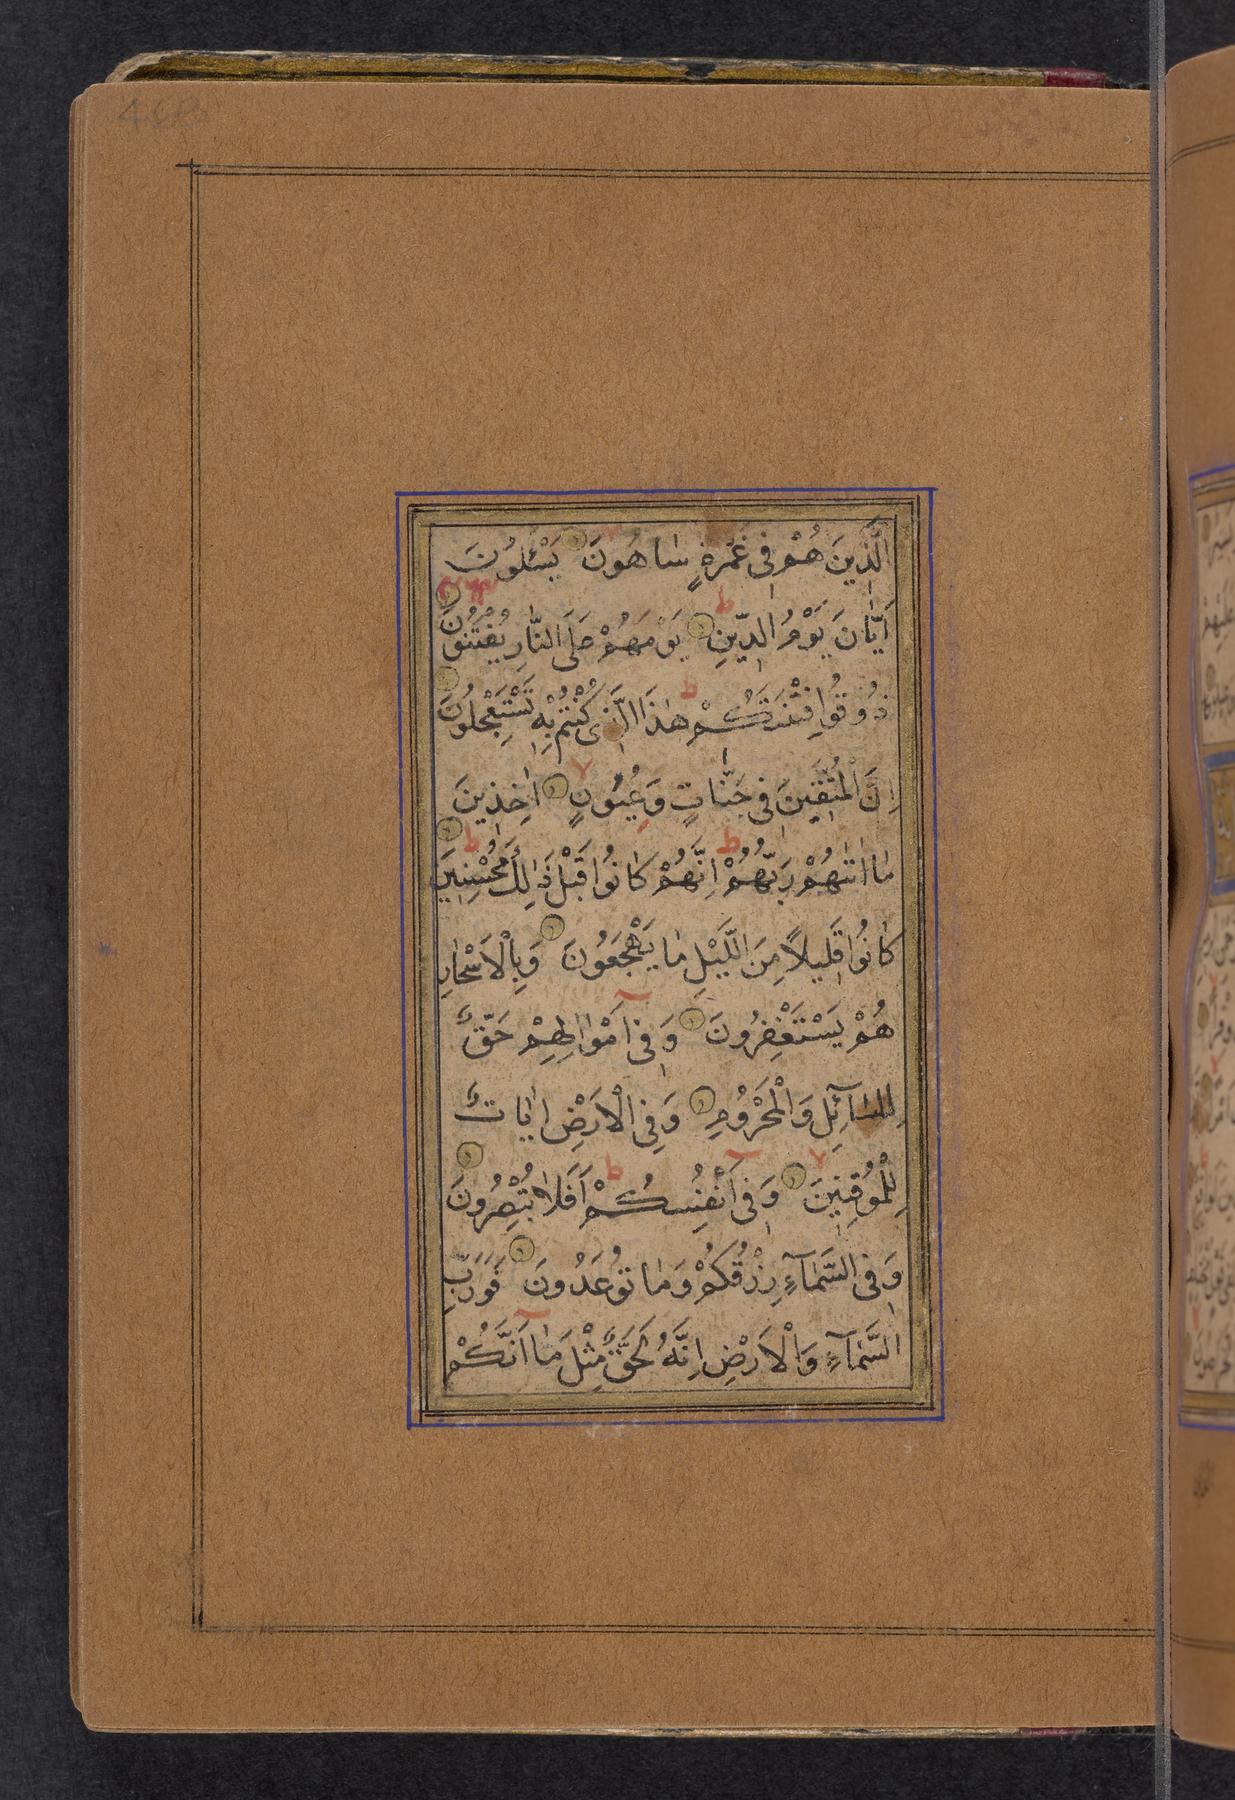 الَّذِينَ هُمْ فِى غَمْرَةٍ سَاهُونَ يَسْئَلُونَ
اَيَّانَ يَوْمُ الدِّينِ يَوْمَ هُمْ عَلَى النَّارِ يُفْتَنُونَ
ذُوقُوا فِتْنَتَكُمْ هٰذَا الَّذِى كُنْتُمْ بِهِ تَسْتَعْجِلُونَ
اِنَّ الْمُتَّقِينَ فِى جَنَّاتٍ وَعُيُونٍ اٰخِذِينَ
مَا اٰتٰهُمْ رَبُّهُمْ اِنَّهُمْ كَانُوا قَبْلَ ذٰلِكَ مُحْسِنِينَ
كَانُوا قَلِيلًا مِنَ اللَّيْلِ مَا يَهْجَعُونَ وَبِالْاَسْحَارِ
هُمْ يَسْتَغْفِرُونَ وَفِى اَمْوَالِهِمْ حَقٌّ
لِلسَّآئِلِ وَالْمَحْرُومِ وَفِى الْاَرْضِ اٰيَاتٌ
لِلْمُوقِنِينَ وَفِى اَنْفُسِكُمْ اَفَلَا تُبْصِرُونَ
وَفِى السَّمَآءِ رِزْقُكُمْ وَمَا تُوعَدُونَ فَوَرَبِّ
السَّمَآءِ وَالْاَرْضِ اِنَّهُ لَحَقٌّ مِثْلَ مَا اَنَّكُمْ